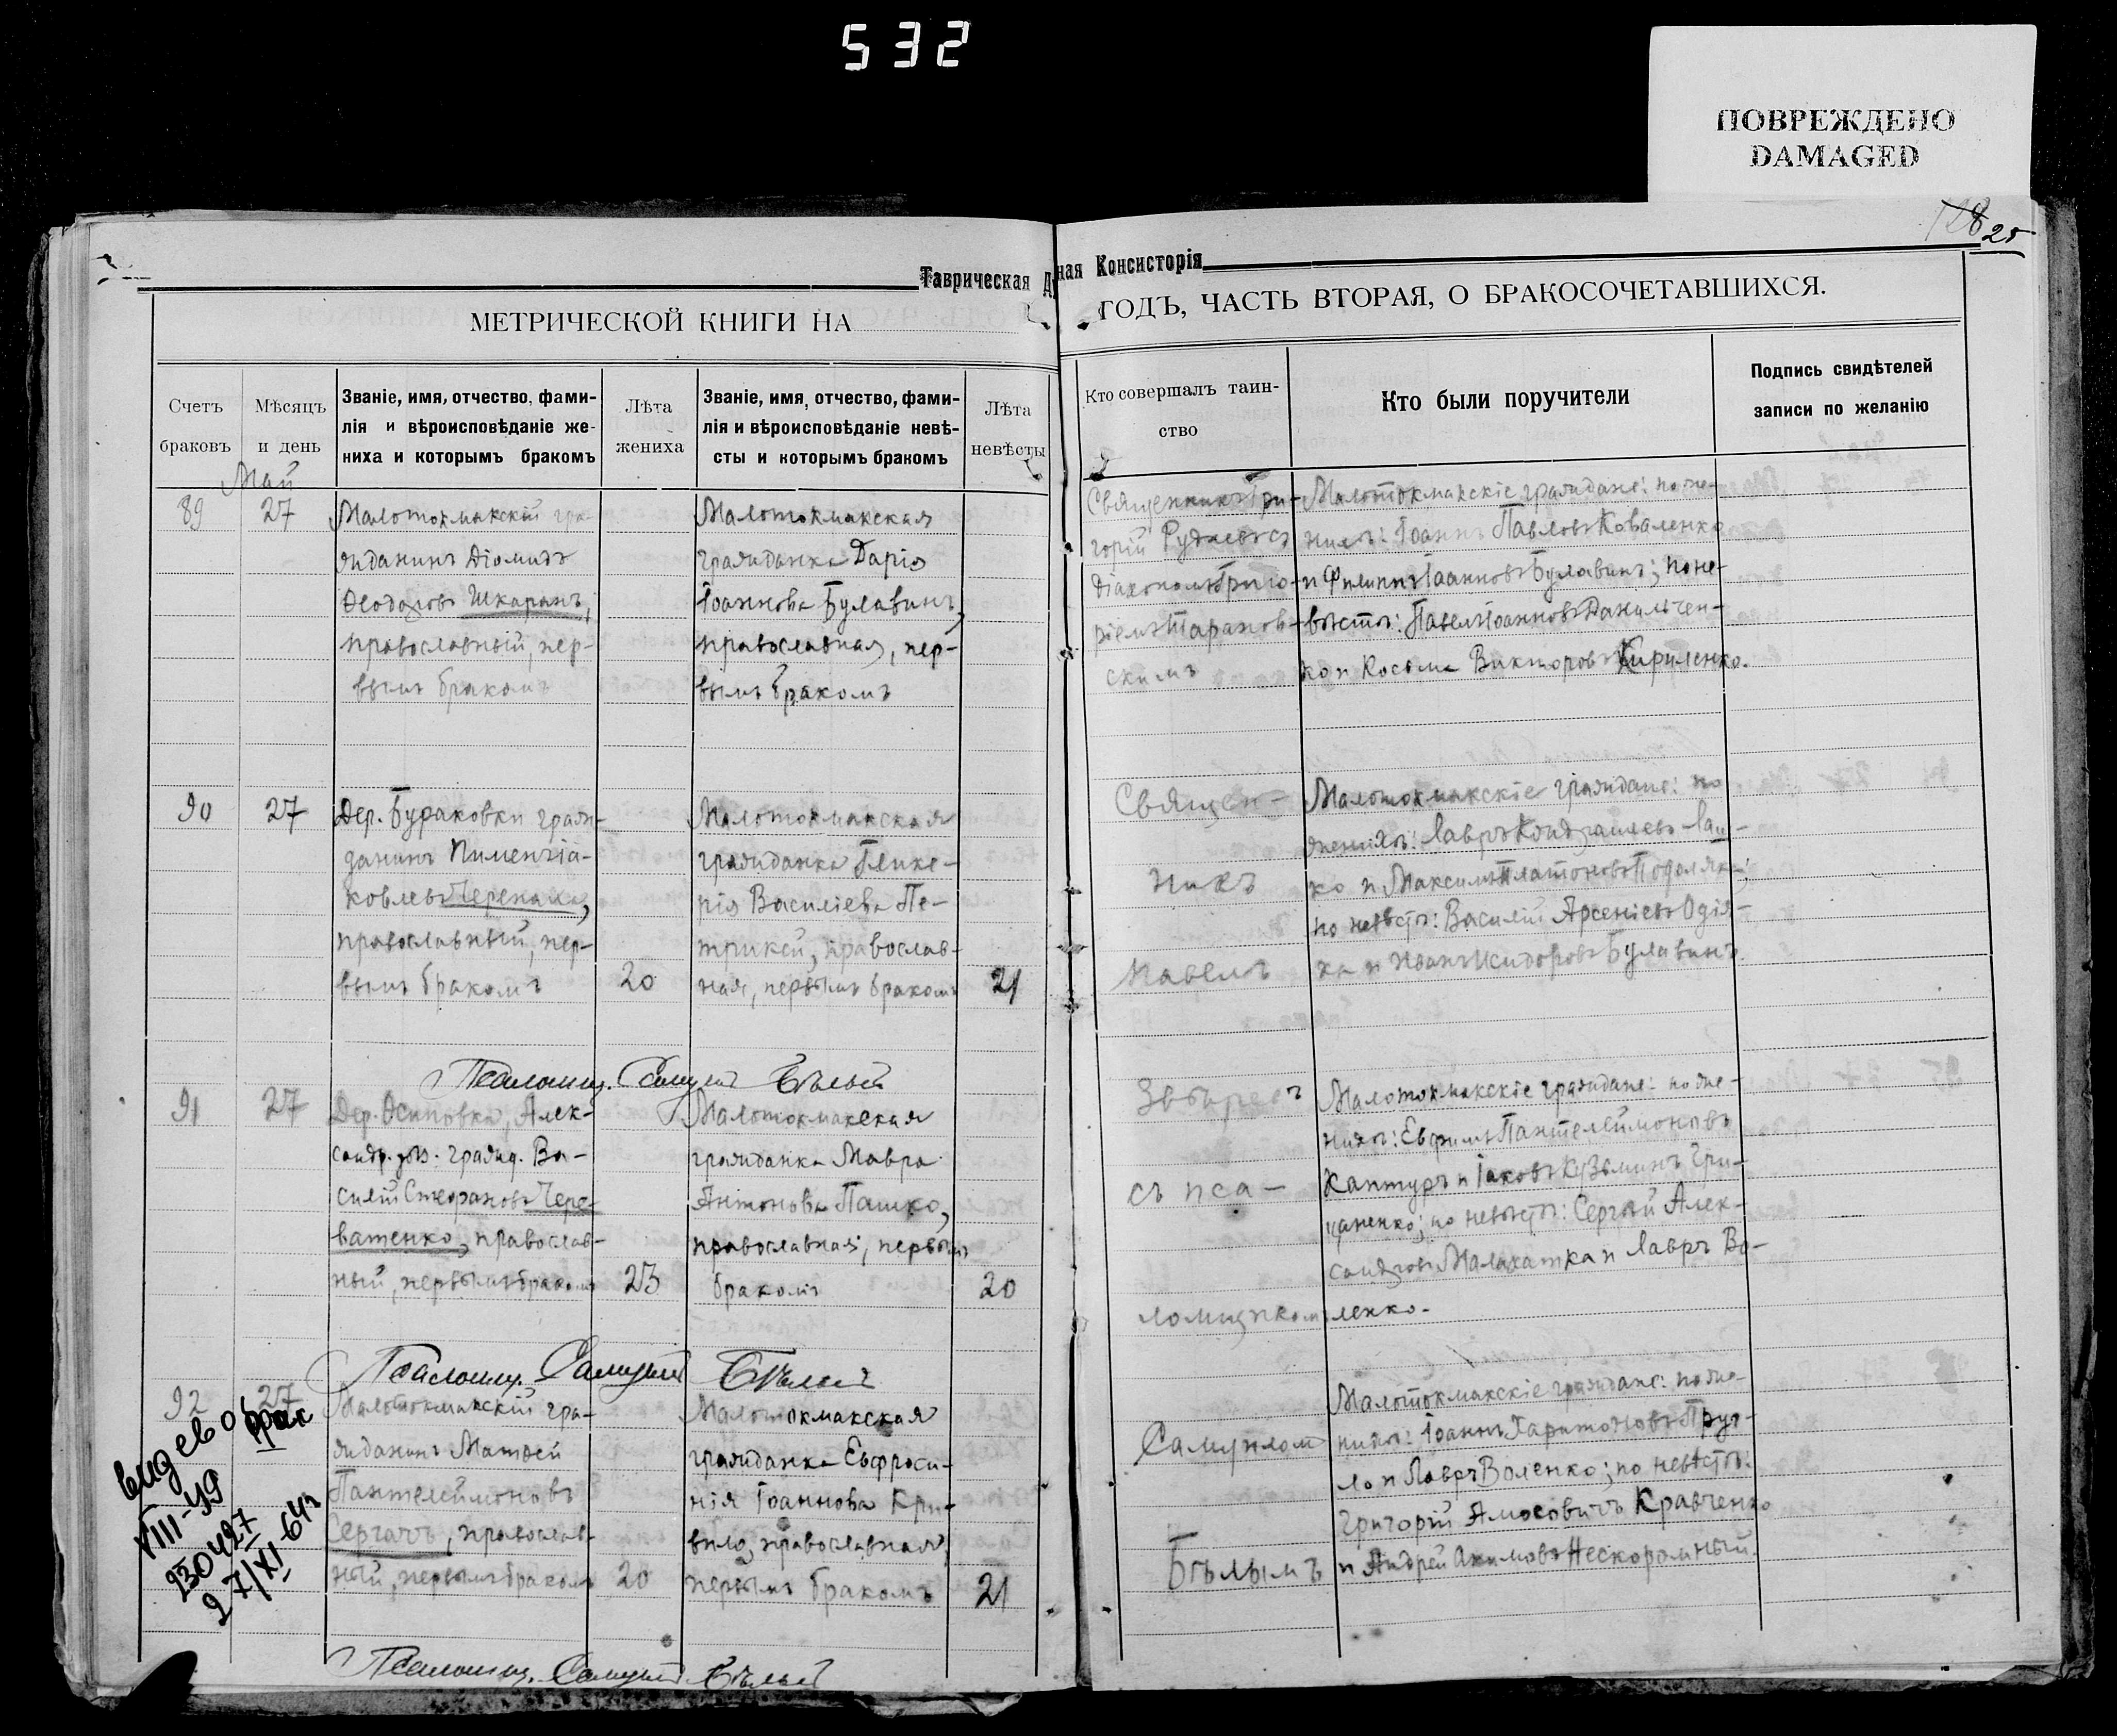 532
ПОВРЕЖДЕНО
DAMAGED
128 25
Таврическая Д ная Консисторія
МЕТРИЧЕСКОЙ КНИГИ НА
ГОДЪ, ЧАСТЬ ВТОРАЯ, О БРАКОСОЧЕТАВШИХСЯ.
Счетъ
браковъ
Мѣсяцъ
и день
Званіе, имя, отчество, фами-
лія и вѣроисповѣданіе же-
ниха и которымъ бракомъ
Лѣта
жениха
Званіе, имя, отчество, фами-
лія и вѣроисповѣданіе невѣ-
сты и которымъ бракомъ
Лѣта
невѣсты
Кто совершалъ таин-
ство
Кто были поручители
Подпись свидѣтелей
записи по желанію
Май
89
27
Малотокмакскій гра-
жданинъ Діомидъ
Ѳеодоровъ Шкаранъ,
православный, пер-
вымъ бракомъ
Малотокмакская
гражданка Дарія
Іоаннова Булавинъ,
православная, пер-
вымъ бракомъ
Священникъ Гри-
горій Рудневъ съ
діакономъ Григо-
ріемъ Таранов-
скимъ
Малотокмакскіе граждане: по же-
нихѣ: Іоаннъ Павловъ Коваленко
и Филиппъ Іоанновъ Булавинъ; по не-
вѣстѣ: Павелъ Іоанновъ Данильчен-
ко и Косьма Викторовъ Кириленко.
90
27
Дер. Бураковки граж-
данинъ Пименъ Іа-
ковлевъ Черепаха,
православный, пер-
вымъ бракомъ
20
Малотокмакская
гражданка Глике-
рія Василіева Пе-
трикей, православ-
ная, первымъ бракомъ
21
Священ-
никъ
Павелъ
Малотокмакскіе граждане: по
женихѣ: Лавръ Кондратьевъ Лаш-
ко и Максимъ Платоновъ Подоляка;
по невѣстѣ: Василій Арсеніевъ Одія-
ка и Иванъ Исидоровъ Булавинъ.
Псаломщ. Самуилъ Бѣлый
91
27
Дер. Осиповка, Алек-
сандр. уѣз. гражд. Ва-
силій Стефановъ Чере-
ватенко, православ-
ный, первымъ бракомъ
23
Малотокмакская
гражданка Мавра
Антонова Пашко,
православная, первымъ
бракомъ
20
Звѣревъ
съ пса-
ломщикомъ
Малотокмакскіе граждане: по же-
нихѣ: Евфимъ Пантелеймоновъ
Кантуръ и Іаковъ Кузьминъ Гри-
цаненко; по невѣстѣ: Сергѣй Алек-
сандровъ Малахатка и Лавръ Во-
ленко.
Псаломщ. Самуилъ Бѣлый
92
27
Малотокмакскій гра-
жданинъ Матѳей
Пантелеймоновъ
Сергачъ, православ-
ный, первымъ бракомъ
20
Малотокмакская
гражданка Евфроси-
нія Іоаннова Кри-
вило, православная,
первымъ бракомъ
21
Самуиломъ
Бѣлымъ
Малотокмакскіе граждане: по же-
нихѣ: Іоаннъ Харитоновъ Пруг-
ло и Лавръ Воленко; по невѣстѣ:
Григорій Амосовичъ Кравченко
и Андрей Акимовъ Нескоромный.
VIII-49
930427
27/XI-64г
Псаломщ. Самуилъ Бѣлый